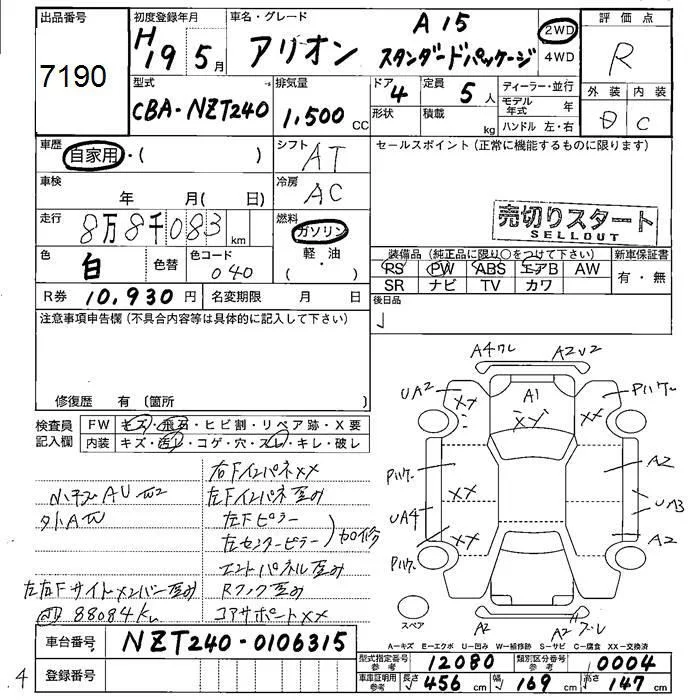 出品番号 初度登録年月 車名・グレード 評価点
7190
H19 5月 アリオン A15 スタンダードパッケージ 2WD 4WD R
型式 排気量 ドア 定員 ディーラー・並行 外装 内装
CBA-NZT240 1,500 CC 4 5人 モデル年式 年 C
形状 積載 kg ハンドル 左・右
車歴 自家用・( ) シフト AT セールスポイント(正常に機能するものに限ります)
車検 年 月( 日) 冷房 AC
走行 8万8千083 km 燃料 ガソリン 売切りスタート
SELLOUT
軽・油
(・)
色 白 色替 色コード 040
装備品(純正品に限り○をつけて下さい) 新車保証書
PS PW ABS エアB AW 有・無
SR ナビ TV カワ
R券 10,930円 名変期限 月 日 後日品
注意事項申告欄(不具合内容等は具体的に記入して下さい)
修復歴 有 (箇所
検査員記入欄 FW キズ・飛石・ヒビ割・リペア跡・X要
内装 キズ・汚レ・コゲ・穴・スレ・キレ・破レ
右FインパネXX
小キズAU 左Fインパネ歪み
左Fピラー
左センターピラー 加修
エンドパネル歪み
左右Fサイドメンバー歪み Rフック歪み
88084Km コアサポートXX
A4ワレ A2U2
UA2 XX A1 XX XX Pハケ
Pハケ A2
XX
UA4 UA3
Pハケ XX A2
スペア A2 A2 ズレ
A-キズ E-エクボ U-凹み W-補修跡 S-サビ C-腐食 XX-交換済
車台番号 NZT240-0106315
型式指定番号 参考 12080 類別区分番号 参考 0004
登録番号
車庫証明用 参考 長さ 456 cm 幅 169 cm 高さ 147 cm
4